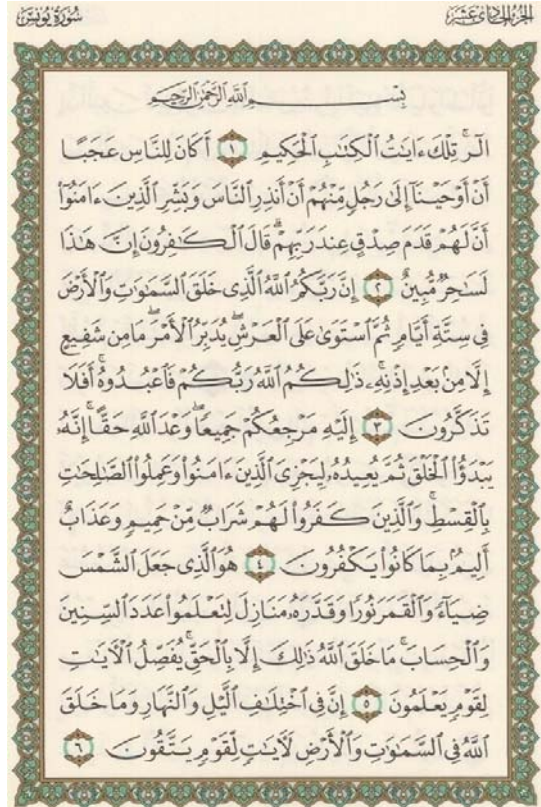 الجزء الحادي عشر
سورة يونس
بِسْمِ ٱللَّهِ ٱلرَّحْمَٰنِ ٱلرَّحِيمِ
الٓر ۚ تِلْكَ ءَايَٰتُ ٱلْكِتَٰبِ ٱلْحَكِيمِ ١ أَكَانَ لِلنَّاسِ عَجَبًا
أَنْ أَوْحَيْنَآ إِلَىٰ رَجُلٍ مِّنْهُمْ أَنْ أَنذِرِ ٱلنَّاسَ وَبَشِّرِ ٱلَّذِينَ ءَامَنُوٓا۟
أَنَّ لَهُمْ قَدَمَ صِدْقٍ عِندَ رَبِّهِمْ ۗ قَالَ ٱلْكَٰفِرُونَ إِنَّ هَٰذَا
لَسَٰحِرٌ مُّبِينٌ ٢ إِنَّ رَبَّكُمُ ٱللَّهُ ٱلَّذِى خَلَقَ ٱلسَّمَٰوَٰتِ وَٱلْأَرْضَ
فِى سِتَّةِ أَيَّامٍ ثُمَّ ٱسْتَوَىٰ عَلَى ٱلْعَرْشِ ۖ يُدَبِّرُ ٱلْأَمْرَ ۖ مَا مِن شَفِيعٍ
إِلَّا مِنۢ بَعْدِ إِذْنِهِۦ ۚ ذَٰلِكُمُ ٱللَّهُ رَبُّكُمْ فَٱعْبُدُوهُ ۚ أَفَلَا
تَذَكَّرُونَ ٣ إِلَيْهِ مَرْجِعُكُمْ جَمِيعًا ۖ وَعْدَ ٱللَّهِ حَقًّا ۚ إِنَّهُۥ
يَبْدَؤُا۟ ٱلْخَلْقَ ثُمَّ يُعِيدُهُۥ لِيَجْزِىَ ٱلَّذِينَ ءَامَنُوا۟ وَعَمِلُوا۟ ٱلصَّٰلِحَٰتِ
بِٱلْقِسْطِ ۚ وَٱلَّذِينَ كَفَرُوا۟ لَهُمْ شَرَابٌ مِّنْ حَمِيمٍ وَعَذَابٌ
أَلِيمٌۢ بِمَا كَانُوا۟ يَكْفُرُونَ ٤ هُوَ ٱلَّذِى جَعَلَ ٱلشَّمْسَ
ضِيَآءً وَٱلْقَمَرَ نُورًا وَقَدَّرَهُۥ مَنَازِلَ لِتَعْلَمُوا۟ عَدَدَ ٱلسِّنِينَ
وَٱلْحِسَابَ ۚ مَا خَلَقَ ٱللَّهُ ذَٰلِكَ إِلَّا بِٱلْحَقِّ ۚ يُفَصِّلُ ٱلْءَايَٰتِ
لِقَوْمٍ يَعْلَمُونَ ٥ إِنَّ فِى ٱخْتِلَٰفِ ٱلَّيْلِ وَٱلنَّهَارِ وَمَا خَلَقَ
ٱللَّهُ فِى ٱلسَّمَٰوَٰتِ وَٱلْأَرْضِ لَءَايَٰتٍ لِّقَوْمٍ يَتَّقُونَ ٦